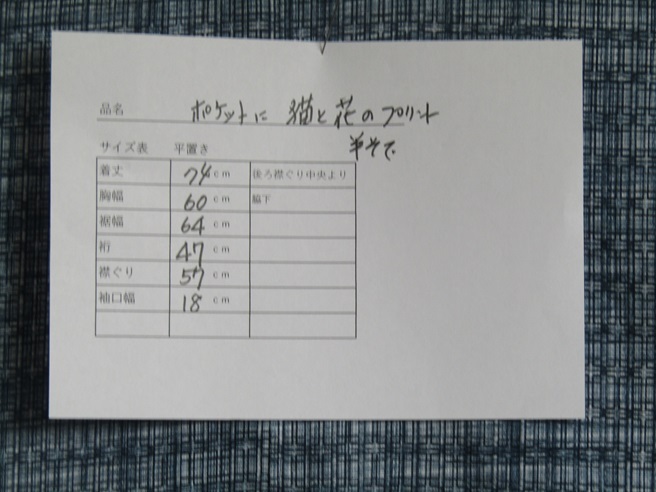 品名 ポケットに 猫と花のプリント
半そで
サイズ表 平置き
着丈 74cm 後ろ襟ぐり中央より
胸幅 60cm 脇下
裾幅 64cm
裄 47cm
襟ぐり 57cm
袖口幅 18cm